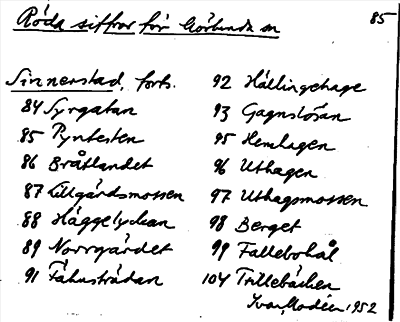 Röda siffror för Görlinda sn
85
Sinnerstad, forts.
84 Syrgatan
85 Pyntesten
86 Bråtlandet
87 Lillgårdsmossen
88 Häggelyckan
89 Norrgärdet
91 Fähusträdan
92 Hällingehage
93 Gagnlösan
95 Hemhagen
96 Uthagen
97 Uthagsmossen
98 Berget
99 Fallebohål
104 Trillebäcken
Ivar Modéer 1952